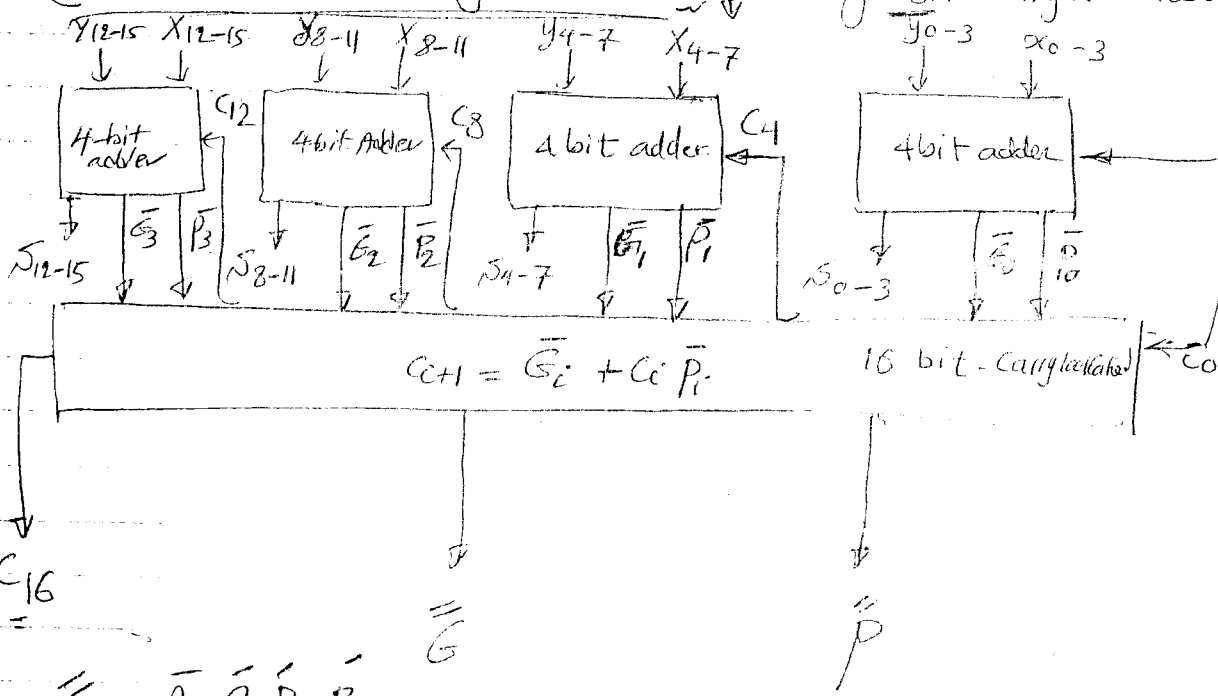 Y12-15 X12-15 Y8-11 X8-11 Y4-7 X4-7 y0-3 x0-3
4-bit adder C12 4bit Adder C8 4 bit adder C4 4bit adder
S12-15 Ḡ3 P̄3 S8-11 Ḡ2 P̄2 S4-7 Ḡ1 P̄1 S0-3 Ḡ0 P̄0
Ci+1 = Ḡi + Ci P̄i 16 bit - Carrylookahead C0
C16
G P